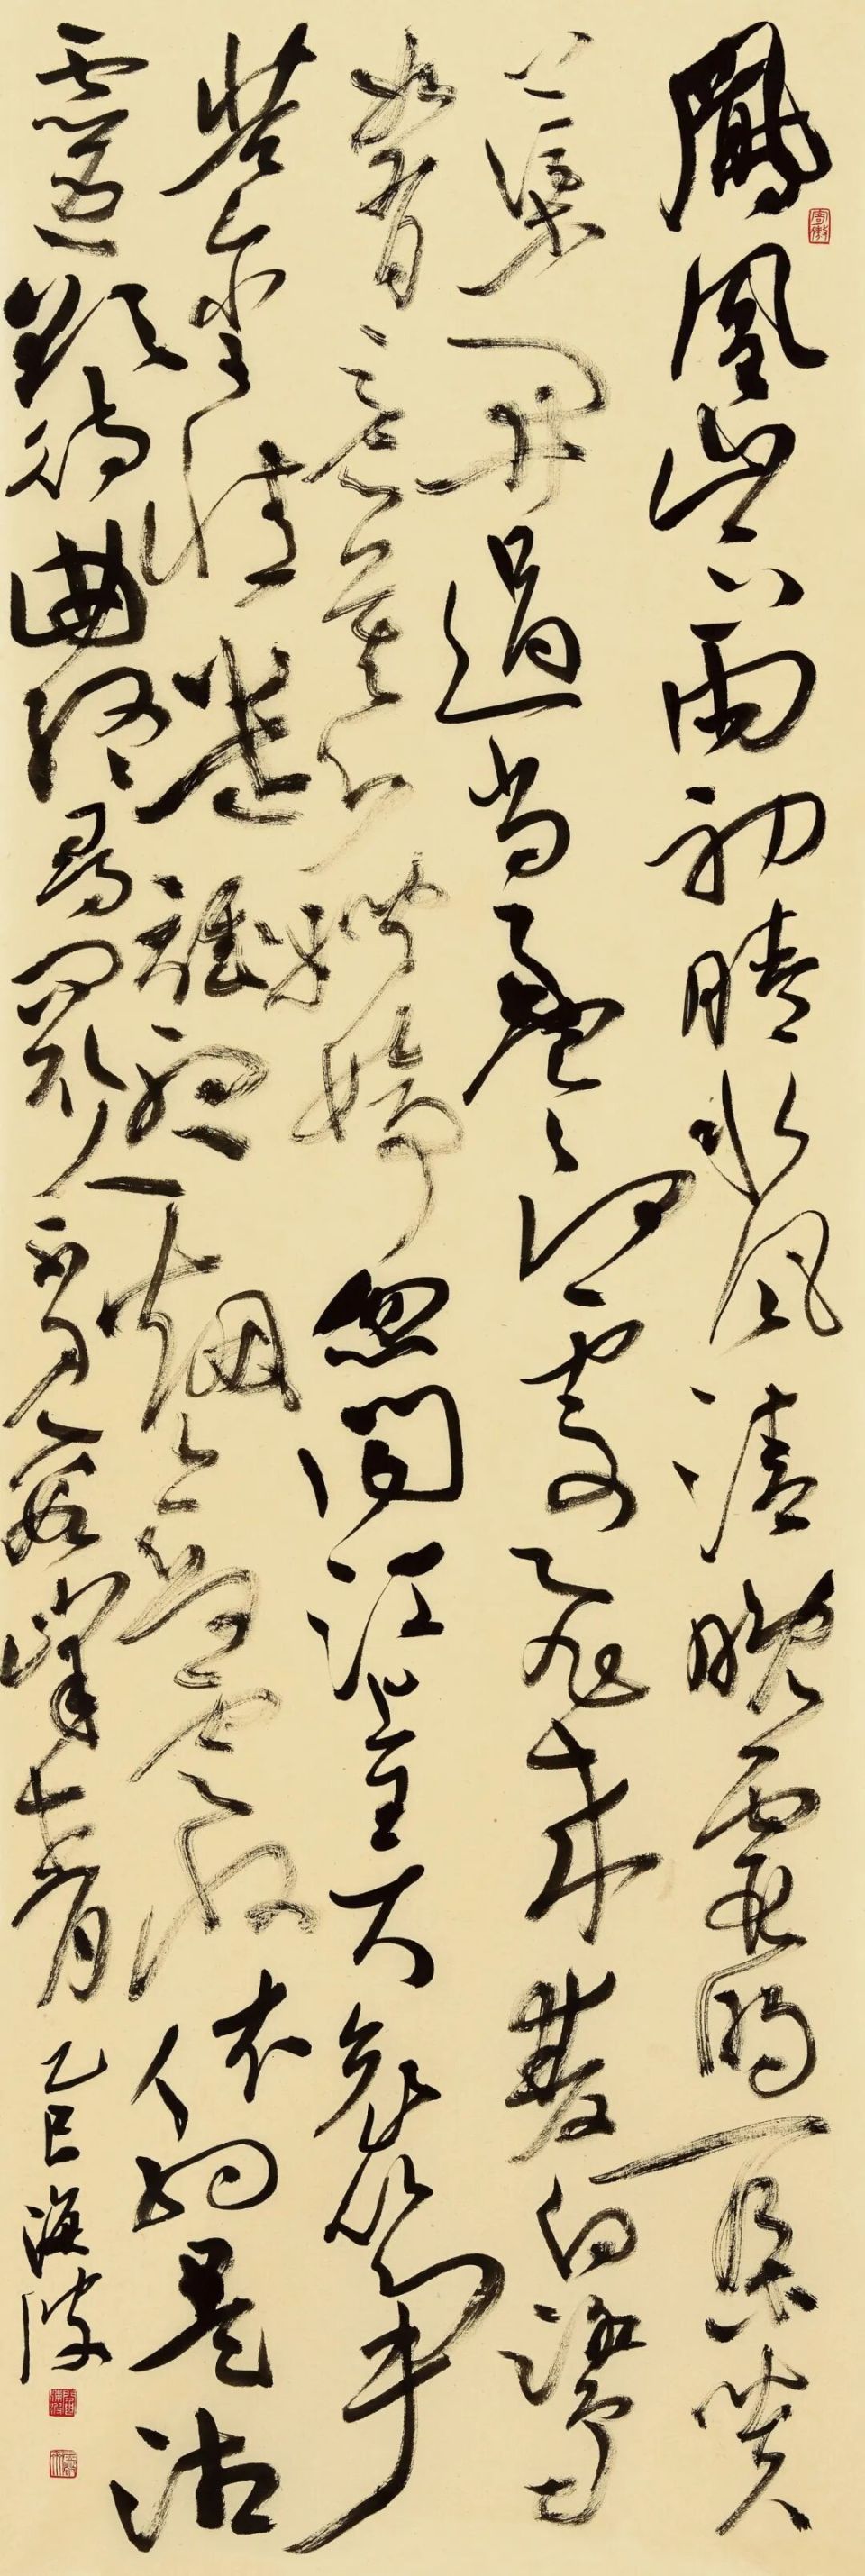 鳳凰山下雨初晴水風清晚霞明一朵芙
蕖開過尚盈盈何處飛來雙白鷺
如有意慕娉婷忽聞江上弄哀箏
苦含情遣誰聽煙斂雲收依約是湘
靈欲待曲終尋問取人不見數峰青
乙巳海